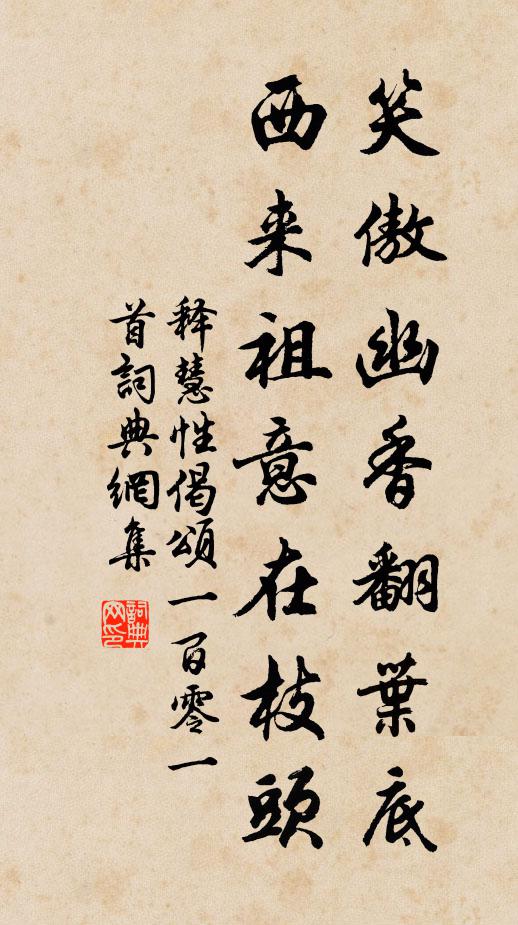 笑傲幽香翻葉底
西来祖意在枝頭
释慧性偈頌一百零一
首詞典網集
詞典网印